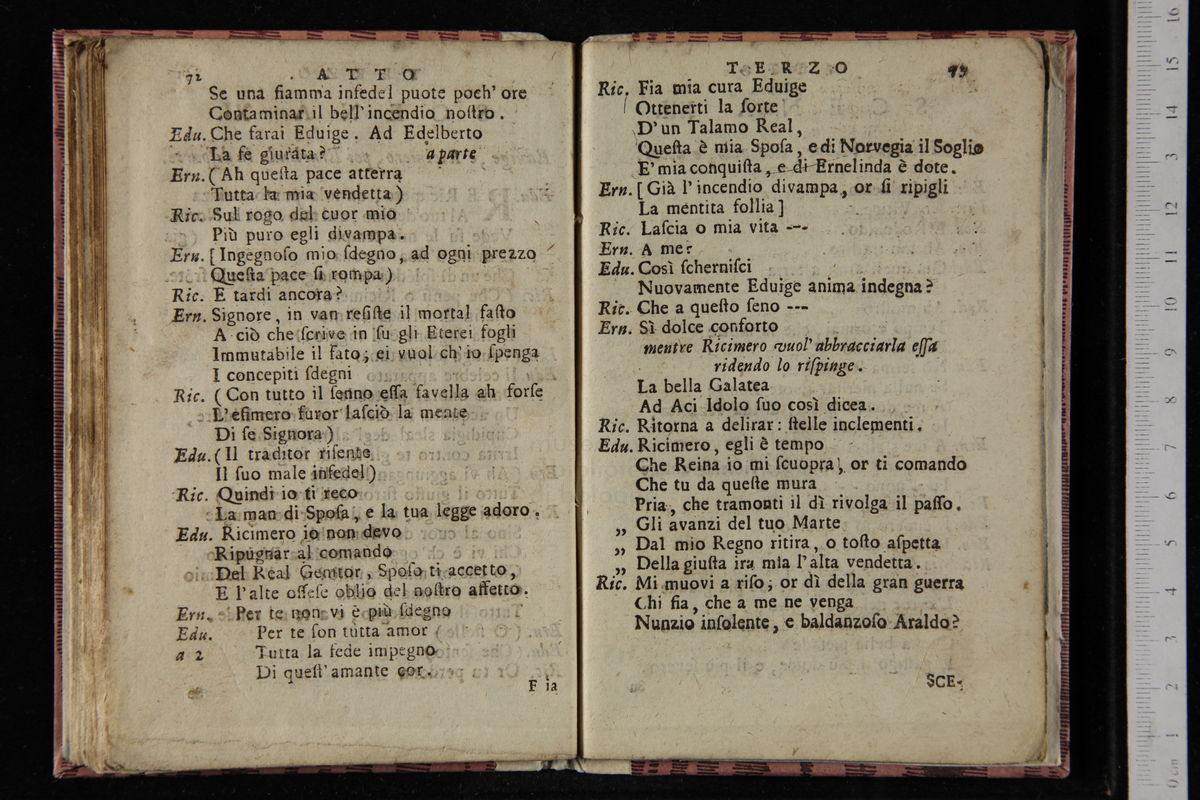 72 . ATTO
Se una fiamma infedel puote poch' ore
Contaminar il bell' incendio noſtro .
Edu. Che farai Eduige . Ad Edelberto
La fe giurata ? a parte
Ern. ( Ah queſta pace atterra
Tutta la mia vendetta )
Ric. Sul rogo del cuor mio
Più puro egli divampa .
Ern. [ Ingegnoſo mio ſdegno, ad ogni prezzo
Queſta pace ſi rompa )
Ric. E tardi ancora ?
Ern. Signore , in van reſiſte il mortal faſto
A ciò che ſcrive in ſu gli Eterei fogli
Immutabile il fato ; ei vuol ch' io ſpenga
I concepiti ſdegni
Ric. ( Con tutto il ſenno eſſa favella ah forſe
L'efimero furor laſciò la mente
Di ſe Signora )
Edu. ( Il traditor riſente
Il ſuo male infedel )
Ric. Quindi io ti reco
La man di Spoſa , e la tua legge adoro .
Edu. Ricimero io non devo
Ripugnar al comando
Del Real Genitor , Spoſo ti accetto ,
E l'alte offeſe oblio del noſtro affetto .
Ern. Per te non vi è più ſdegno
Edu. Per te ſon tutta amor
a 2 Tutta la fede impegno
Di queſt' amante cor .
F ia
TERZO 73
Ric. Fia mia cura Eduige
Ottenerti la ſorte
D'un Talamo Real ,
Queſta è mia Spoſa , e di Norvegia il Soglio
E' mia conquiſta , e di Ernelinda è dote .
Ern. [ Già l' incendio divampa , or ſi ripigli
La mentita follia ]
Ric. Laſcia o mia vita ---
Ern. A me ?
Edu. Così ſcherniſci
Nuovamente Eduige anima indegna ?
Ric. Che a queſto ſeno ---
Ern. Sì dolce conforto
mentre Ricimero vuol' abbracciarla eſſa
ridendo lo riſpinge .
La bella Galatea
Ad Aci Idolo ſuo così dicea .
Ric. Ritorna a delirar : ſtelle inclementi .
Edu. Ricimero , egli è tempo
Che Reina io mi ſcuopra , or ti comando
Che tu da queſte mura
Pria , che tramonti il dì rivolga il paſſo .
„ Gli avanzi del tuo Marte
„ Dal mio Regno ritira , o toſto aſpetta
„ Della giuſta ira mia l'alta vendetta .
Ric. Mi muovi a riſo ; or dì della gran guerra
Chi fia , che a me ne venga
Nunzio inſolente , e baldanzoſo Araldo ?
SCE-
16
15
14
13
12
11
10
9
8
7
6
5
4
3
2
1
0 cm